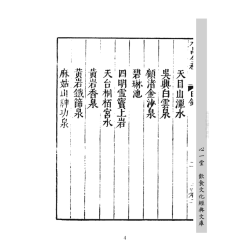 天目山瀑水
吳興白雲泉
顧渚金沙泉
碧琳池
四明雪竇上岩
天台桐栢宮水
黃岩香泉
黃岩鐵篩泉
麻姑山神功泉
心一堂 飲食文化經典文庫